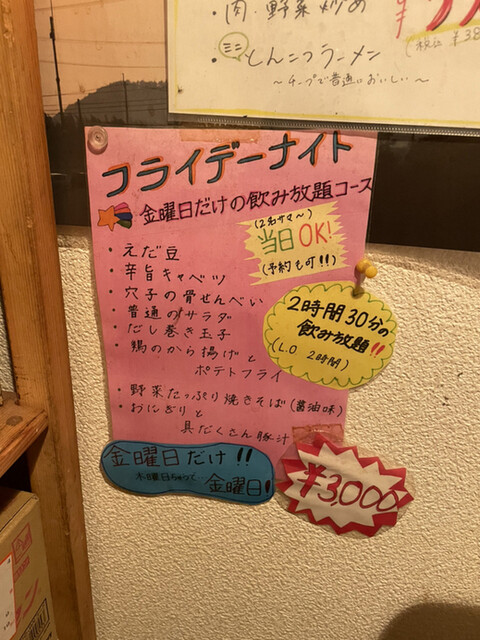 ・肉・野菜炒め
・ミニとんこつラーメン
～チープで普通においしい～
フライデーナイト
金曜日だけの飲み放題コース
(2名サマ～)
当日OK!
(予約も可!!)
・えだ豆
・辛旨キャベツ
・穴子の骨せんべい
・普通のサラダ
・だし巻き玉子
・鶏のから揚げと
ポテトフライ
・野菜たっぷり焼きそば(醤油味)
・おにぎりと
具だくさん豚汁
2時間30分の
飲み放題!!
(L.O 2時間)
金曜日だけ!!
木曜日ちゃって
金曜日!
¥3,000